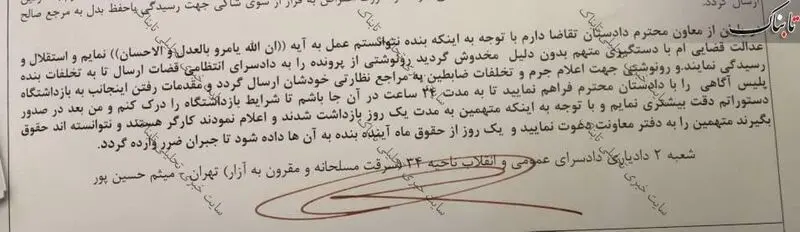 ارسال گردد.
قرار از سوی شاکی جهت رسیدگی باحفظ بدل به مرجع صالح
تابناک
از معاون محترم دادستان تقاضا دارم با توجه به اینکه بنده نتوانستم عمل به آیه ((ان الله یامرو بالعدل و الاحسان)) نمایم و استقلال و
عدالت قضایی ام با دستگیری متهم بدون دلیل مخدوش گردید رونوشتی از پرونده را به دادسرای انتظامی قضات ارسال تا به تخلفات بنده
رسیدگی نمایند و رونوشتی جهت اعلام جرم و تخلفات ضابطین به مراجع نظارتی خودشان ارسال گردد و مقدمات رفتن اینجانب به بازداشتگاه
پلیس آگاهی را با دادستان محترم فراهم نمایید تا به مدت ۲۴ ساعت در آن جا باشم تا شرایط بازداشتگاه را درک کنم و من بعد در صدور
دستوراتم دقت بیشتری نمایم و با توجه به اینکه متهمین به مدت یک روز بازداشت شدند و اعلام نمودند کارگر هستند و نتوانسته اند حقوق
بگیرند متهمین را به دفتر معاونت دعوت نمایید و یک روز از حقوق ماه آینده بنده به آن ها داده شود تا جبران ضرر وارده گردد.
شعبه ۲ دادیاری دادسرای عمومی و انقلاب ناحیه ۳۴ (سرقت مسلحانه و مقرون به آزار) تهران - میثم حسین پور
سایت خبری تحلیلی تابناک